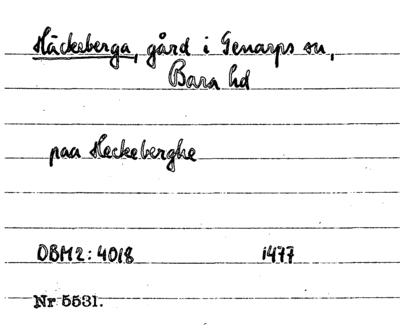 Häckeberga, gård i Genarps sn,
Bara hd
paa Heckeberghe
DBM2:4018 1477
Nr 5531.